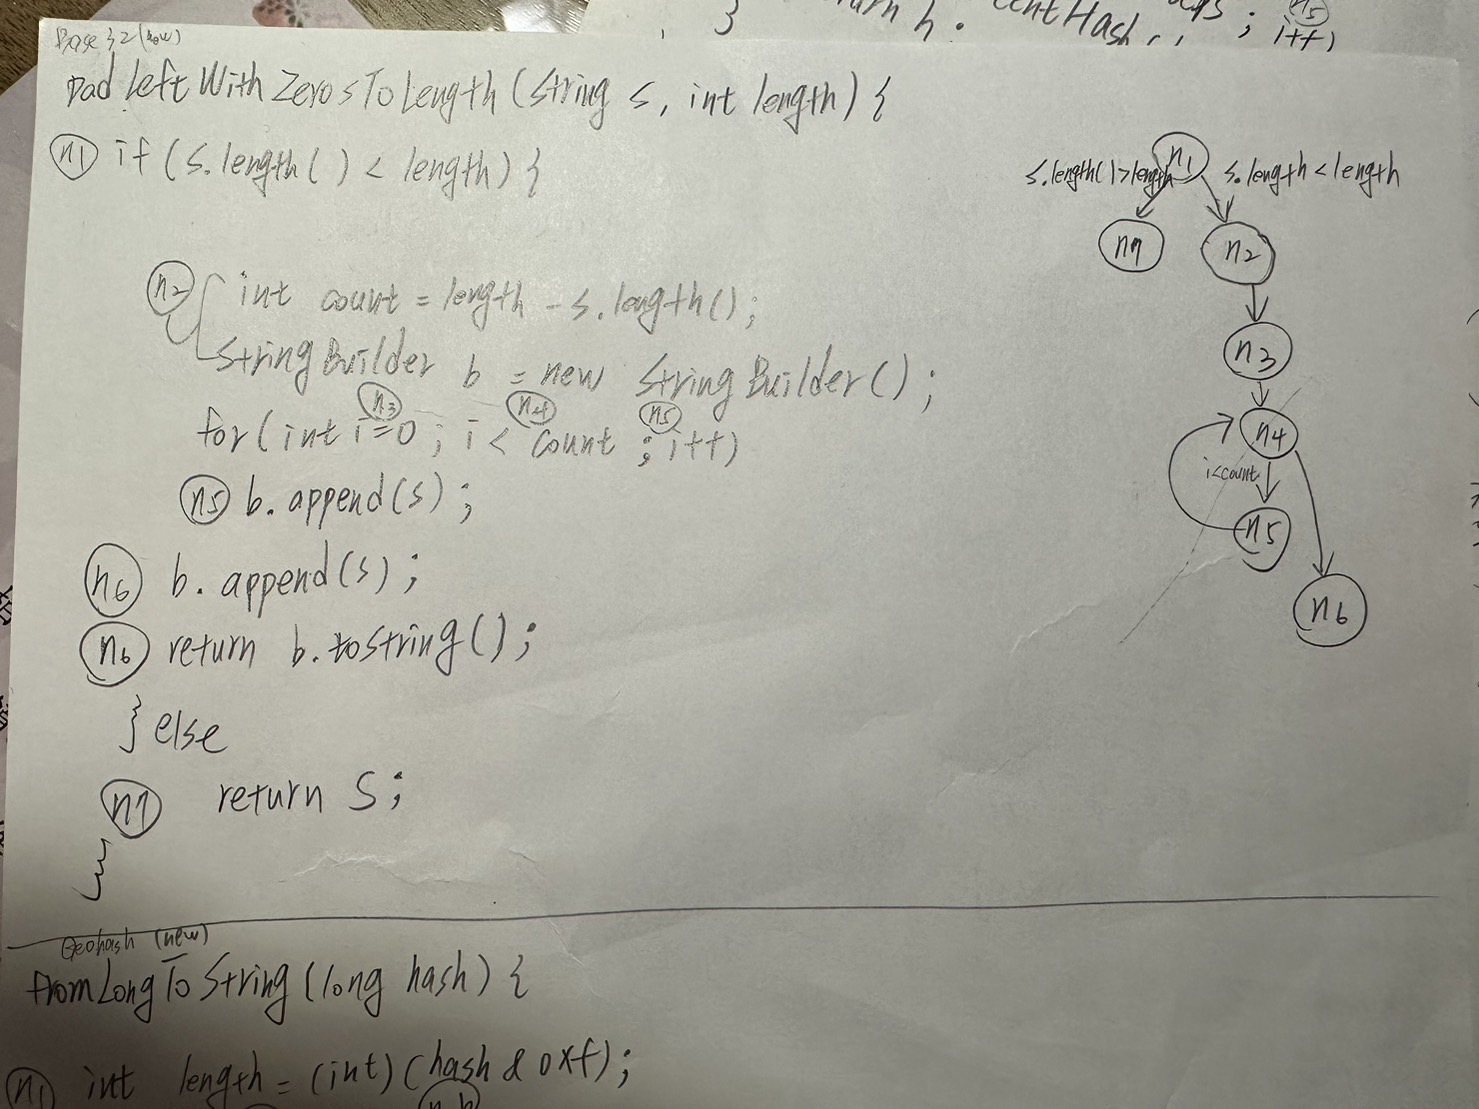 n5
} h. centHash
; i++)
Base32 (new)
Pad Left With Zeros To Length (String s, int length) {
n1 if (s.length() < length) {
n2 int count = length - s.length();
StringBuilder b = new StringBuilder();
n3 n4 n5
for (int i=0; i < count ; i++)
n5 b. append(s);
n6 b. append(s);
n6 return b. toString();
} else
n7 return S;
}
n1
s.length()>length s.length<length
n7 n2
n3
n4
i<count
n5
n6
Geohash (new)
fromLongToString (long hash) {
n1 int length = (int) (hash & 0xf);